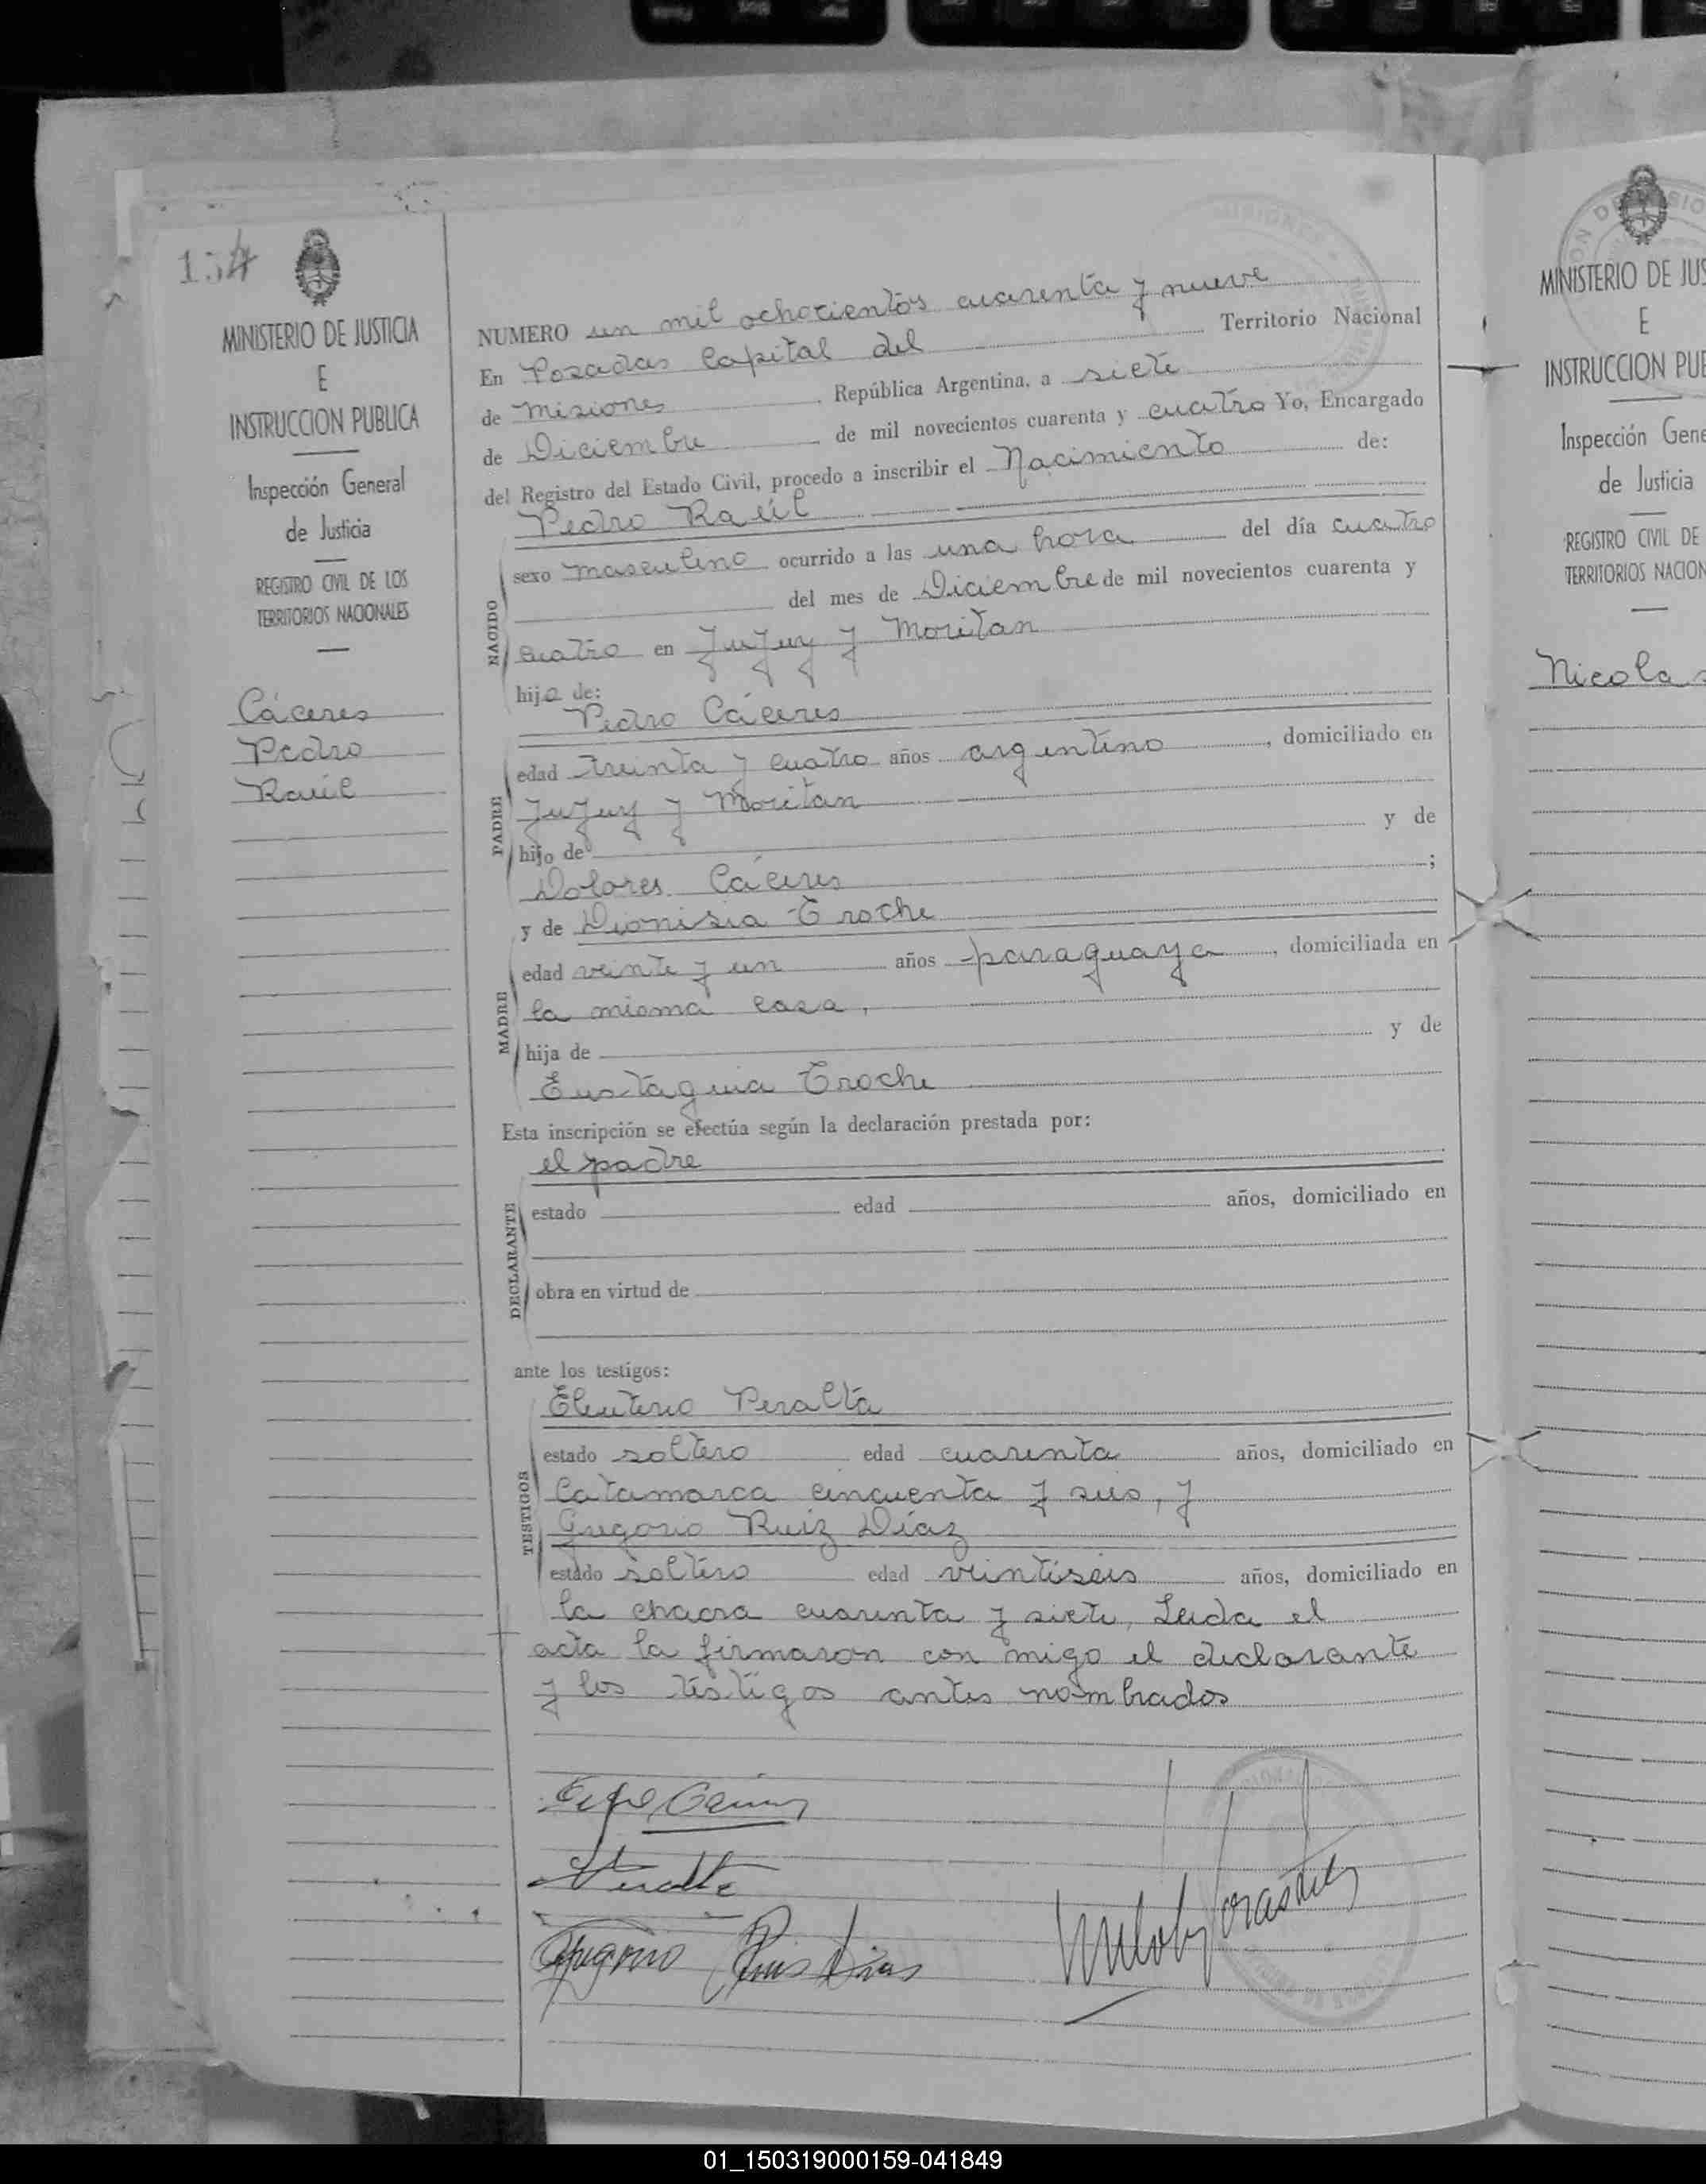 154
MINISTERIO DE JUSTICIA
E
INSTRUCCION PUBLICA
Inspección General
de Justicia
REGISTRO CIVIL DE LOS
TERRITORIOS NACIONALES
Cáceres
Pedro
Raúl
NUMERO un mil ochocientos cuarenta y nueve
En Posadas Capital del Territorio Nacional
de Misiones, República Argentina, a siete
de Diciembre de mil novecientos cuarenta y cuatro Yo, Encargado
del Registro del Estado Civil, procedo a inscribir el Nacimiento de:
Pedro Raúl
NACIDO
sexo masculino ocurrido a las una hora del día cuatro
del mes de Diciembre de mil novecientos cuarenta y
cuatro en Jujuy y Moritan
hijo de:
Pedro Cáceres
PADRE
edad treinta y cuatro años argentino, domiciliado en
Jujuy y Moritan
hijo de y de
Dolores Cáceres ;
y de Dionisia Troche
MADRE
edad veinte y un años paraguaya, domiciliada en
la misma casa,
hija de y de
Eustaquia Troche
Esta inscripción se efectúa según la declaración prestada por:
el padre
DECLARANTE
estado edad años, domiciliado en
obra en virtud de
ante los testigos:
Eleuterio Peralta
TESTIGOS
estado soltero edad cuarenta años, domiciliado en
Catamarca cincuenta y seis, y
Gregorio Ruiz Díaz
estado soltero edad veintiseis años, domiciliado en
la chacra cuarenta y siete, Leida el
acta la firmaron con migo el declarante
y los testigos antes nombrados
Peralta
Gregorio Ruis Dias
MINISTERIO DE JUS
E
INSTRUCCION PUB
Inspección Gene
de Justicia
REGISTRO CIVIL DE
TERRITORIOS NACION
Nicolas
01_150319000159-041849